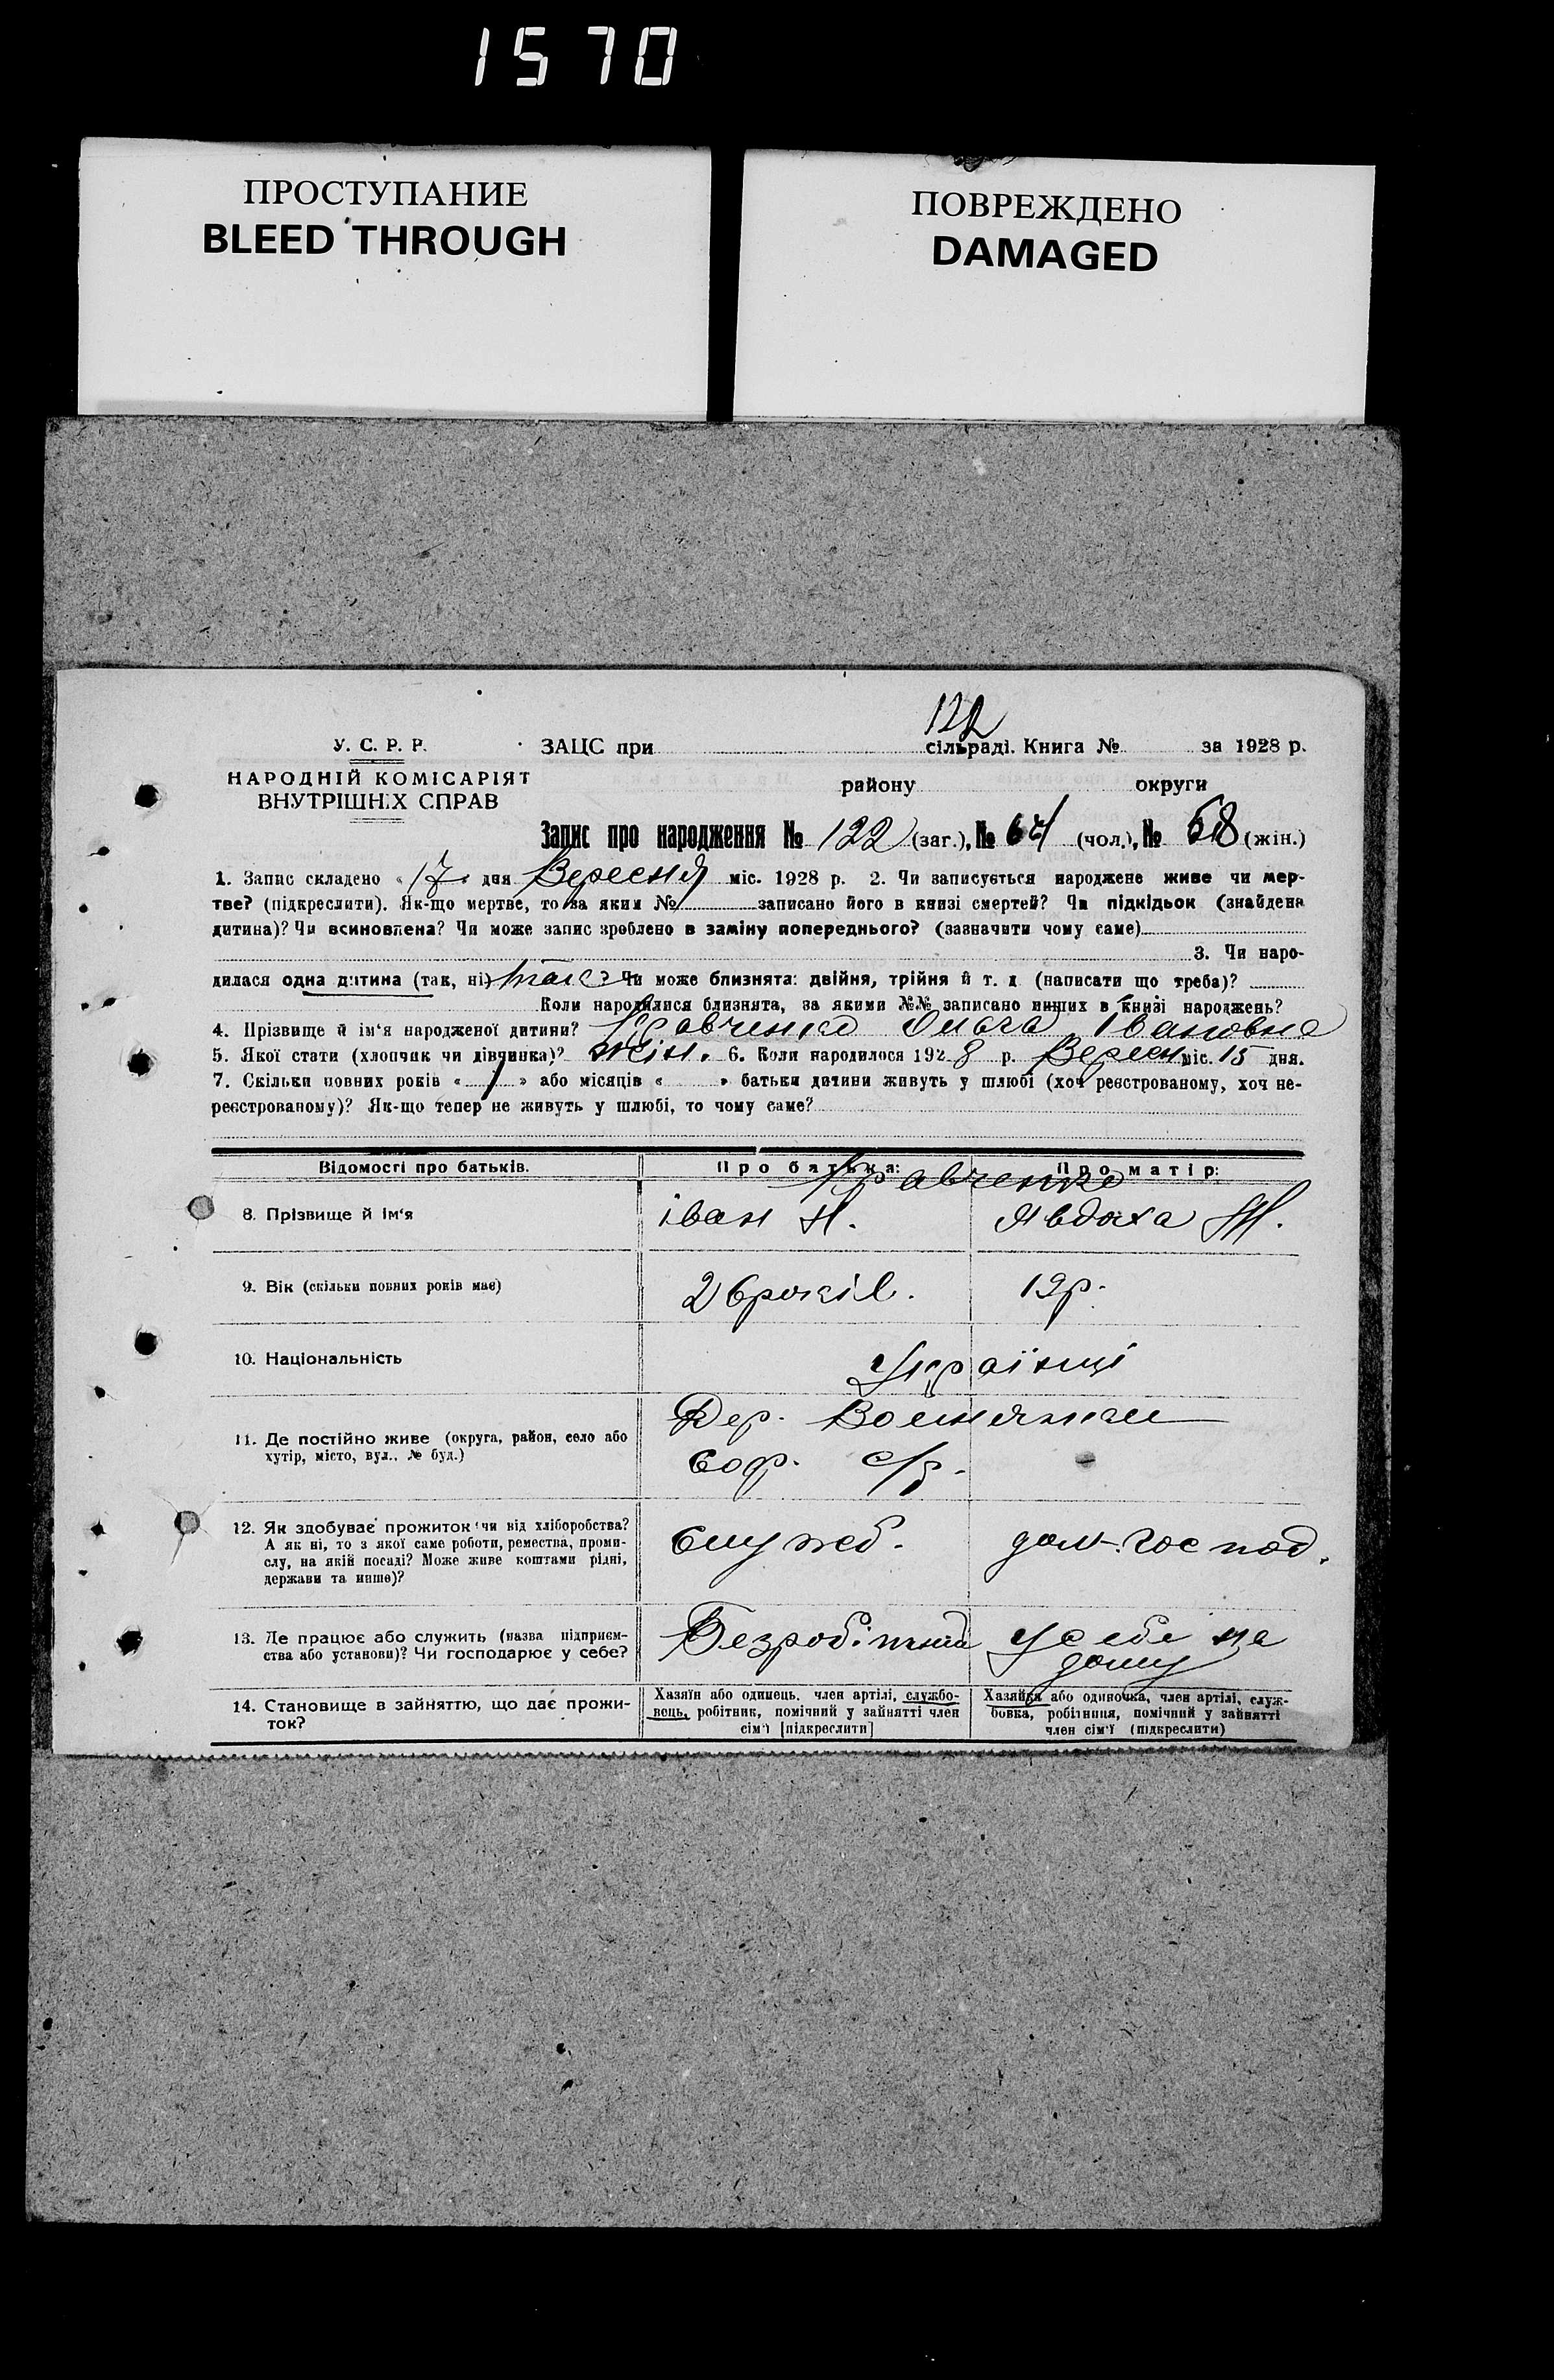 1570
ПРОСТУПАНИЕ
BLEED THROUGH
ПОВРЕЖДЕНО
DAMAGED
122
У. С. Р. Р.
ЗАЦС при сільраді. Книга № за 1928 р.
НАРОДНІЙ КОМІСАРІЯТ
ВНУТРІШНІХ СПРАВ
району округи
Запис про народження № 122 (заг.), № 64 (чол.), № 58 (жін.)
1. Запис складено « 17 » дня Вересня міс. 1928 р. 2. Чи записується народжене живе чи мер-
тве? (підкреслити). Як-що мертве, то за яким № записано його в книзі смертей? Чи підкідьок (знайдена
дитина)? Чи всиновлена? Чи може запис зроблено в заміну попереднього? (зазначити чому саме)
3. Чи наро-
дилася одна дитина (так, ні) так? Чи може близнята: двійня, трійня й т. д. (написати що треба)?
Коли народилися близнята, за якими №№ записано инших в книзі народжень?
4. Прізвище й ім'я народженої дитини? Кравченко Ольга Івановна
5. Якої стати (хлопчик чи дівчинка)? жін. 6. Коли народилося 1928 р. Вересн міс. 15 дня.
7. Скільки повних років « 1 » або місяців « » батьки дитини живуть у шлюбі (хоч реєстрованому, хоч не-
реєстрованому)? Як-що тепер не живуть у шлюбі, то чому саме?
Відомості про батьків. Про батька: Про матір:
Кравченко
8. Прізвище й ім'я Іван Н. Явдоха М.
9. Вік (скільки повних років має) 26 років. 19 р.
10. Національність Українці
Дер.
11. Де постійно живе (округа, район, село або
хутір, місто, вул., № буд.) Соф. с/р.
12. Як здобуває прожиток чи від хліборобства? Служб. дом. господ.
А як ні, то з якої саме роботи, ремества, проми-
слу, на якій посаді? Може живе коштами рідні,
держави та инше)?
13. Де працює або служить (назва підприєм-
ства або установи)? Чи господарює у себе? Безробітний у себе на
дому
14. Становище в зайняттю, що дає прожи-
ток?
Хазяїн або одинець, член артілі, службо-
вець, робітник, помічний у зайнятті член
сім'ї [підкреслити]
Хазяйка або одиночка, член артілі, служ-
бовка, робітниця, помічний у зайнятті
член сім'ї (підкреслити)